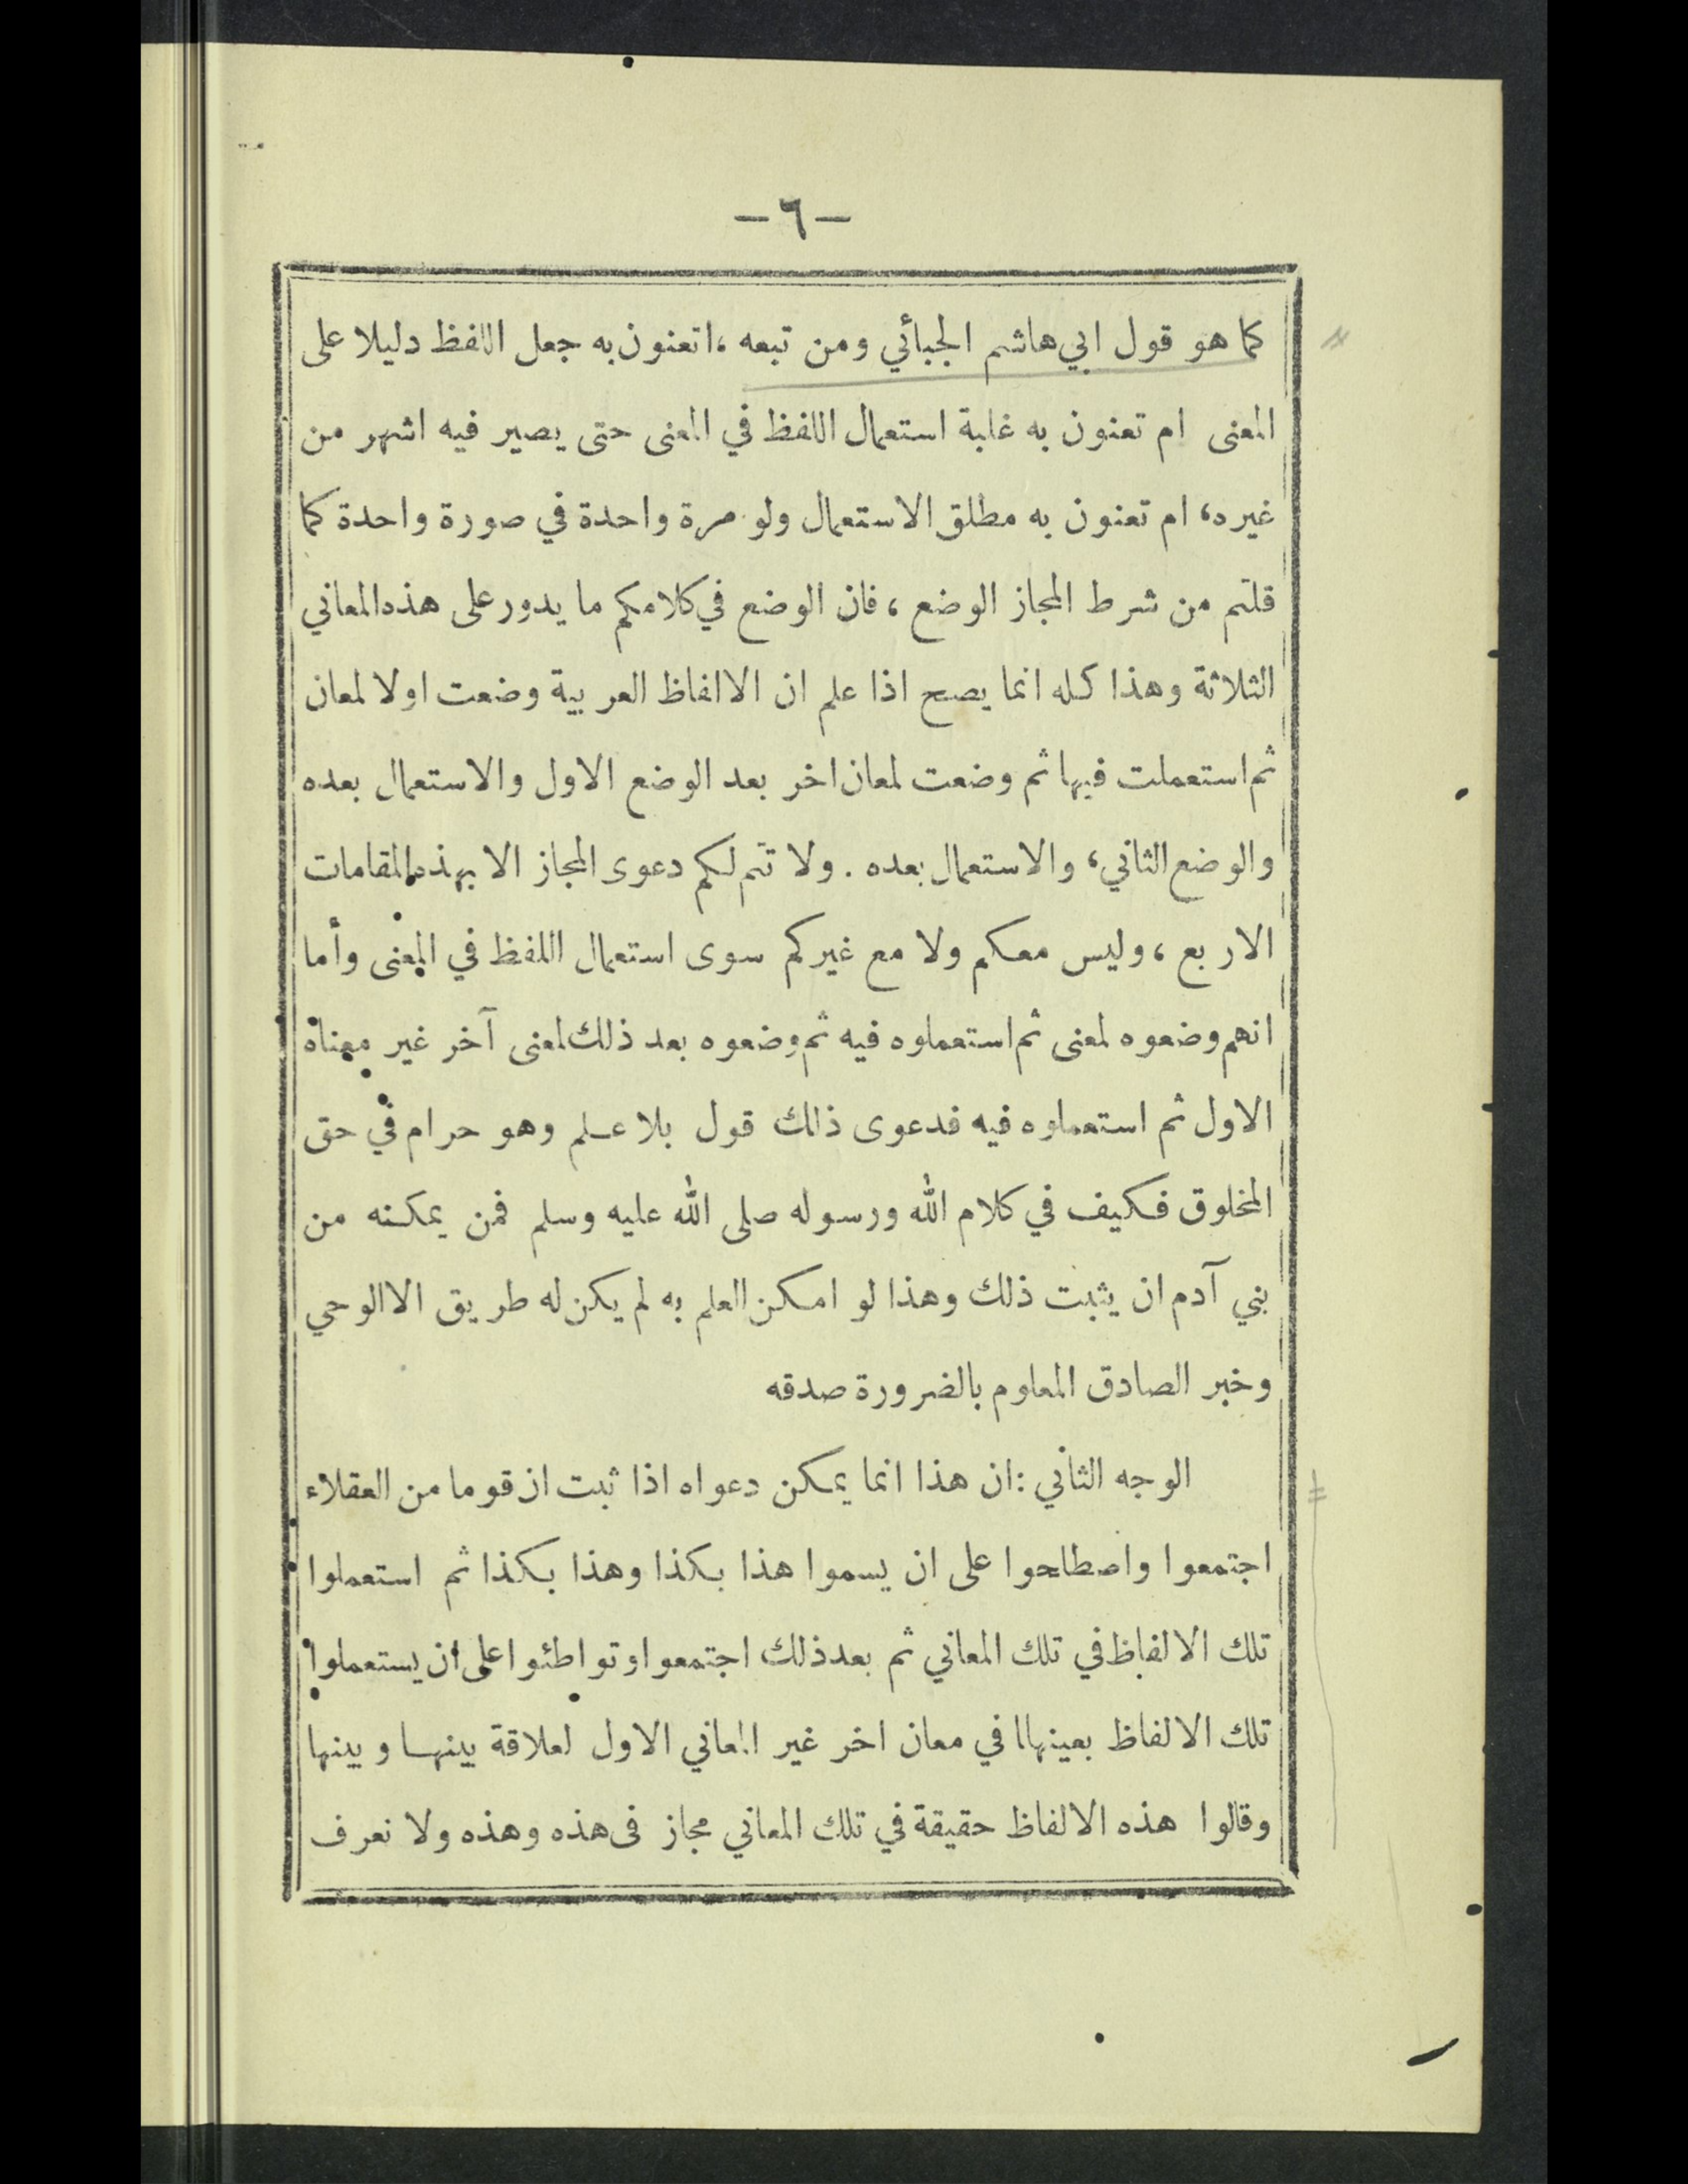 — ٦ —
كما هو قول ابي هاشم الجبائي ومن تبعه ، اتعنون به جعل اللفظ دليلا على
المعنى ام تعنون به غلبة استعمال اللفظ في المعنى حتى يصير فيه اشهر من
غيره ، ام تعنون به مطلق الاستعمال ولو مرة واحدة في صورة واحدة كما
قلتم من شرط المجاز الوضع ، فان الوضع في كلامكم ما يدور على هذه المعاني
الثلاثة وهذا كله انما يصح اذا علم ان الالفاظ العربية وضعت اولا لمعان
ثم استعملت فيها ثم وضعت لمعان اخر بعد الوضع الاول والاستعمال بعده
والوضع الثاني ، والاستعمال بعده . ولا تتم لكم دعوى المجاز الا بهذه المقامات
الاربع ، وليس معكم ولا مع غيركم سوى استعمال اللفظ في المعنى وأما
انهم وضعوه لمعنى ثم استعملوه فيه ثم وضعوه بعد ذلك لمعنى آخر غير معناه
الاول ثم استعملوه فيه فدعوى ذلك قول بلا علم وهو حرام في حق
المخلوق فكيف في كلام الله ورسوله صلى الله عليه وسلم فمن يمكنه من
بني آدم ان يثبت ذلك وهذا لو امكن العلم به لم يكن له طريق الا الوحي
وخبر الصادق المعلوم بالضرورة صدقه
الوجه الثاني : ان هذا انما يمكن دعواه اذا ثبت ان قوما من العقلاء
اجتمعوا واصطلحوا على ان يسموا هذا بكذا وهذا بكذا ثم استعملوا
تلك الالفاظ في تلك المعاني ثم بعد ذلك اجتمعوا وتواطئوا على ان يستعملوا
تلك الالفاظ بعينهاا في معان اخر غير المعاني الاول لعلاقة بينها وبينها
وقالوا هذه الالفاظ حقيقة في تلك المعاني مجاز فى هذه وهذه ولا نعرف